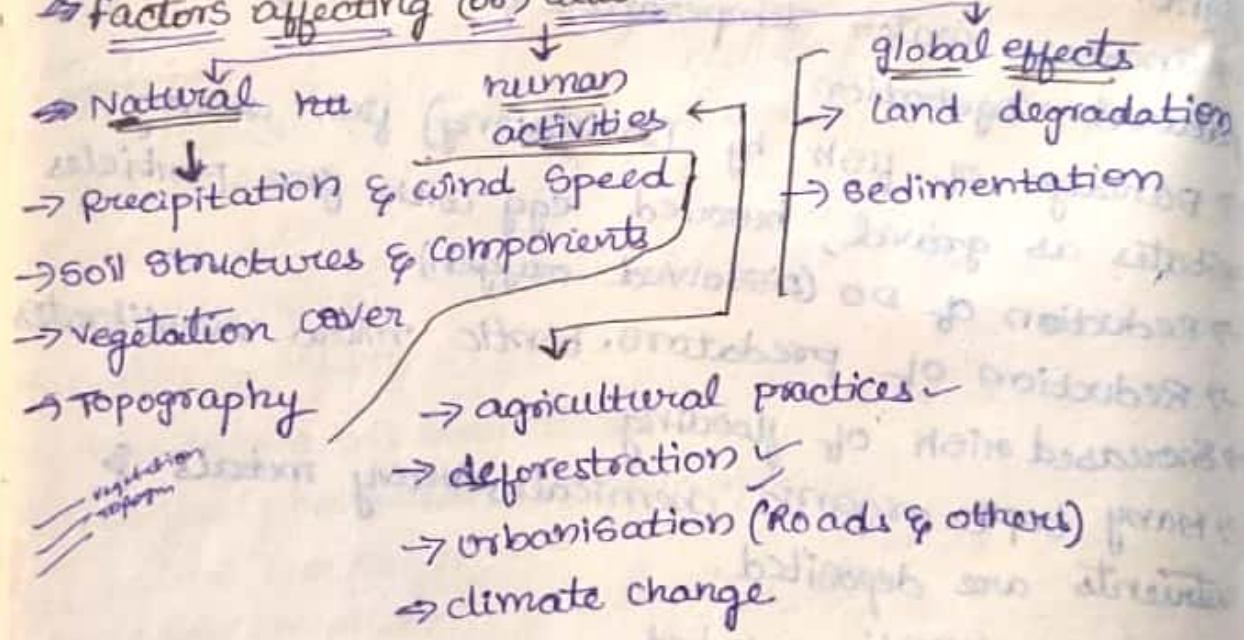 ⇒ factors affecting (or)
⇒ Natural hu
→ precipitation & wind speed
→ soil structures & components
→ vegetation cover
→ Topography
vegetation
Topogra
human
activities
→ agricultural practices ✓
→ deforestration ✓
→ urbanisation (Roads & others)
⇒ climate change
global effects
→ land degradation
→ sedimentation